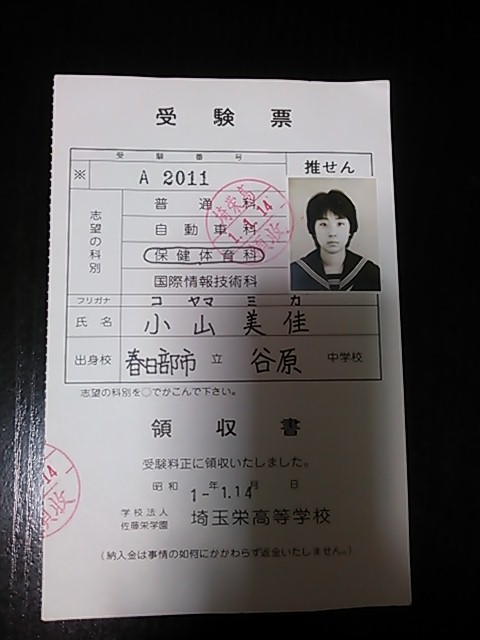 受験票
受験番号
推せん
※ A 2011
志望の科別
普通科
自動車科
保健体育科
国際情報技術科
フリガナ コヤマ ミカ
氏名 小山美佳
出身校 春日部市立 谷原 中学校
志望の科別を○でかこんで下さい。
領収書
受験料正に領収いたしました。
昭和 年 月 日
1-1.14
学校法人
佐藤栄学園 埼玉栄高等学校
(納入金は事情の如何にかかわらず返金いたしません。)